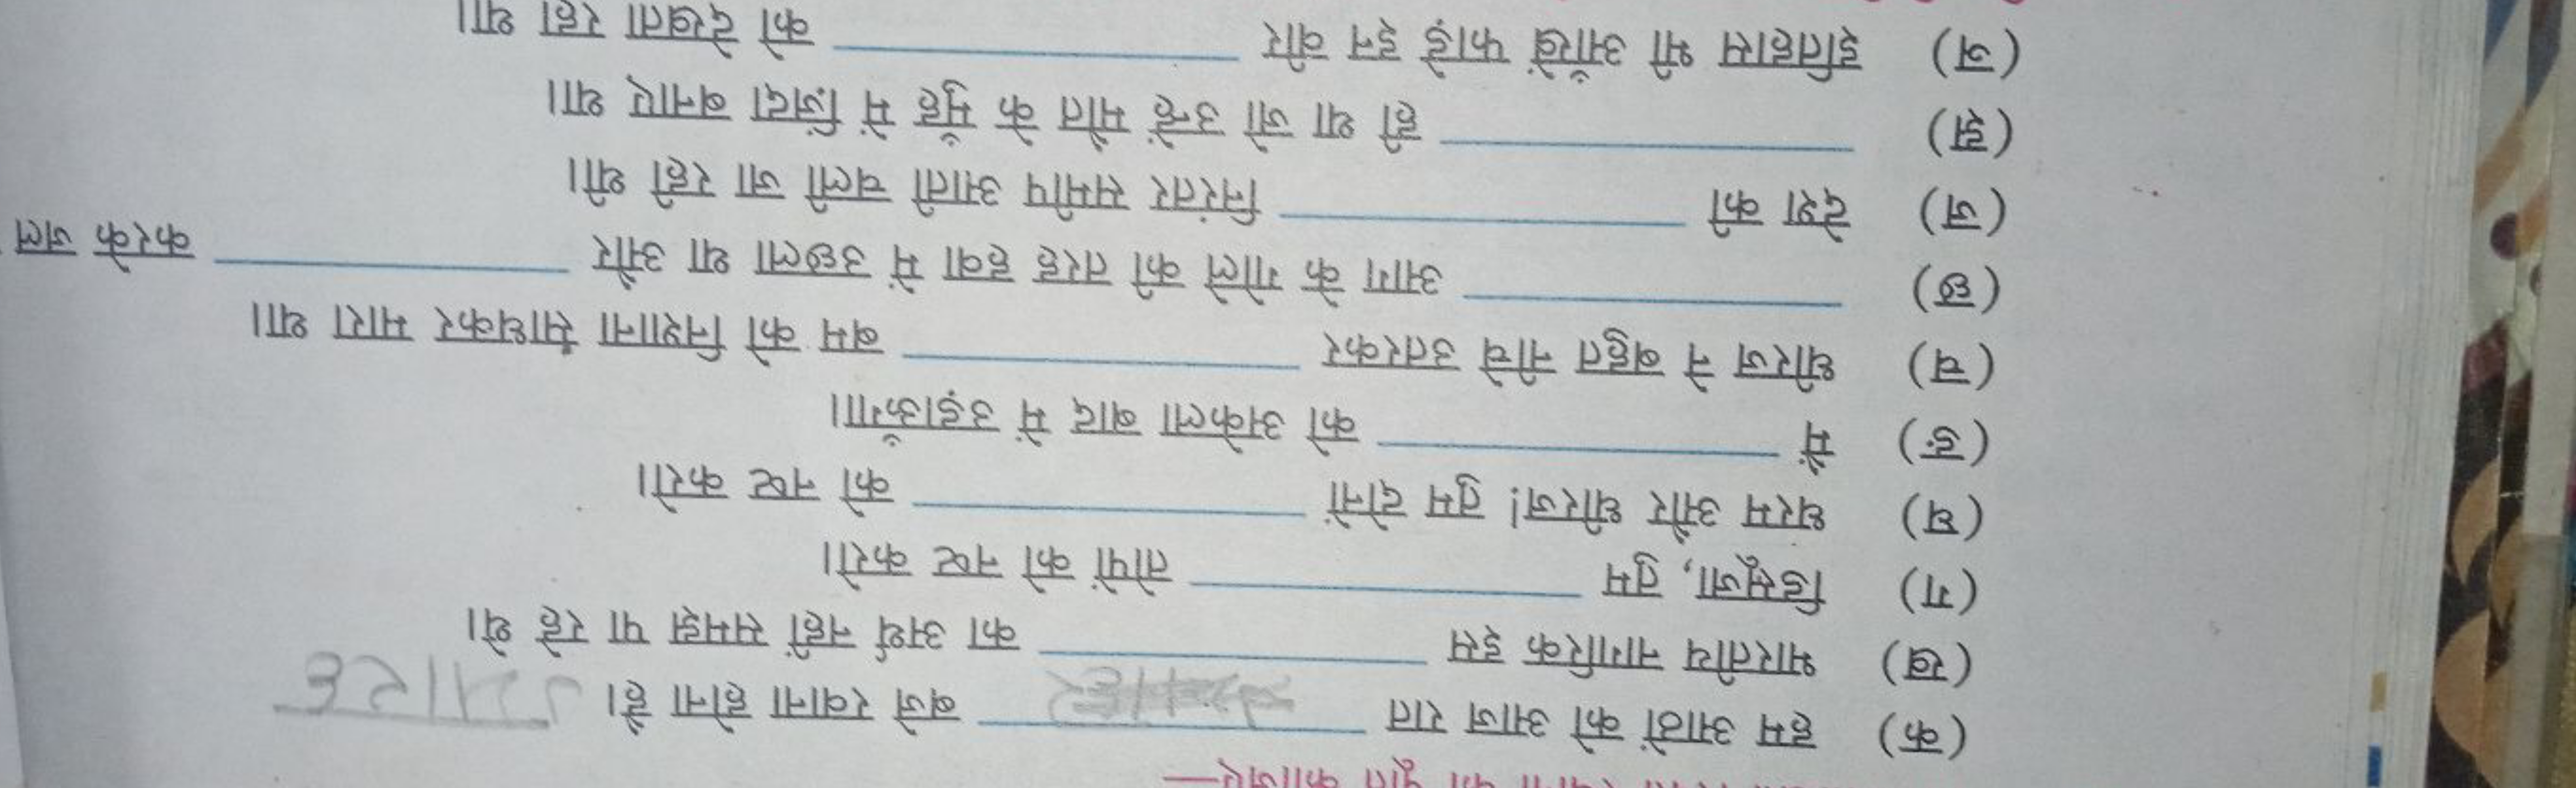 की पूर्ति कीजिए—
(क) हम आठों को आज रात ग्यारह बजे रवाना होना है।
(ख) भारतीय नागरिक इस ____ का अर्थ नहीं समझ पा रहे थे।
(ग) डिसूजा, तुम ____ तोपों को नष्ट करो।
(घ) धरम और धीरज! तुम दोनों ____ को नष्ट करो।
(ङ) मैं ____ को अकेला बाद में उड़ाऊँगा।
(च) धीरज ने बहुत नीचे उतरकर ____ बम को निशाना साधकर मारा था।
(छ) ____ आग के गोले की तरह हवा में उछला था और ____ करके जल
(ज) देश की ____ निरंतर समीप आती चली जा रही थी।
(झ) ____ ही था जो उन्हें मौत के मुँह में ज़िंदा बनाए था।
(ञ) इतिहास भी आँखें फाड़े इन वीर ____ को देखता रहा था।